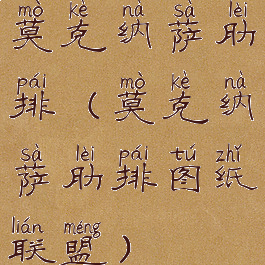 mò kè nà sà lèi
莫克纳萨肋
pái mò kè nà
排（莫克纳
sà lèi pái tú zhǐ
萨肋排图纸
lián méng
联盟）